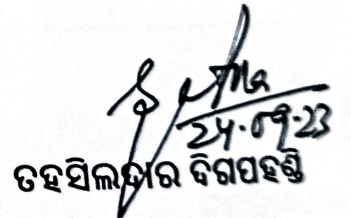 24.09.23
ତହସିଲଦାର ଦିଗପହଣ୍ଡି